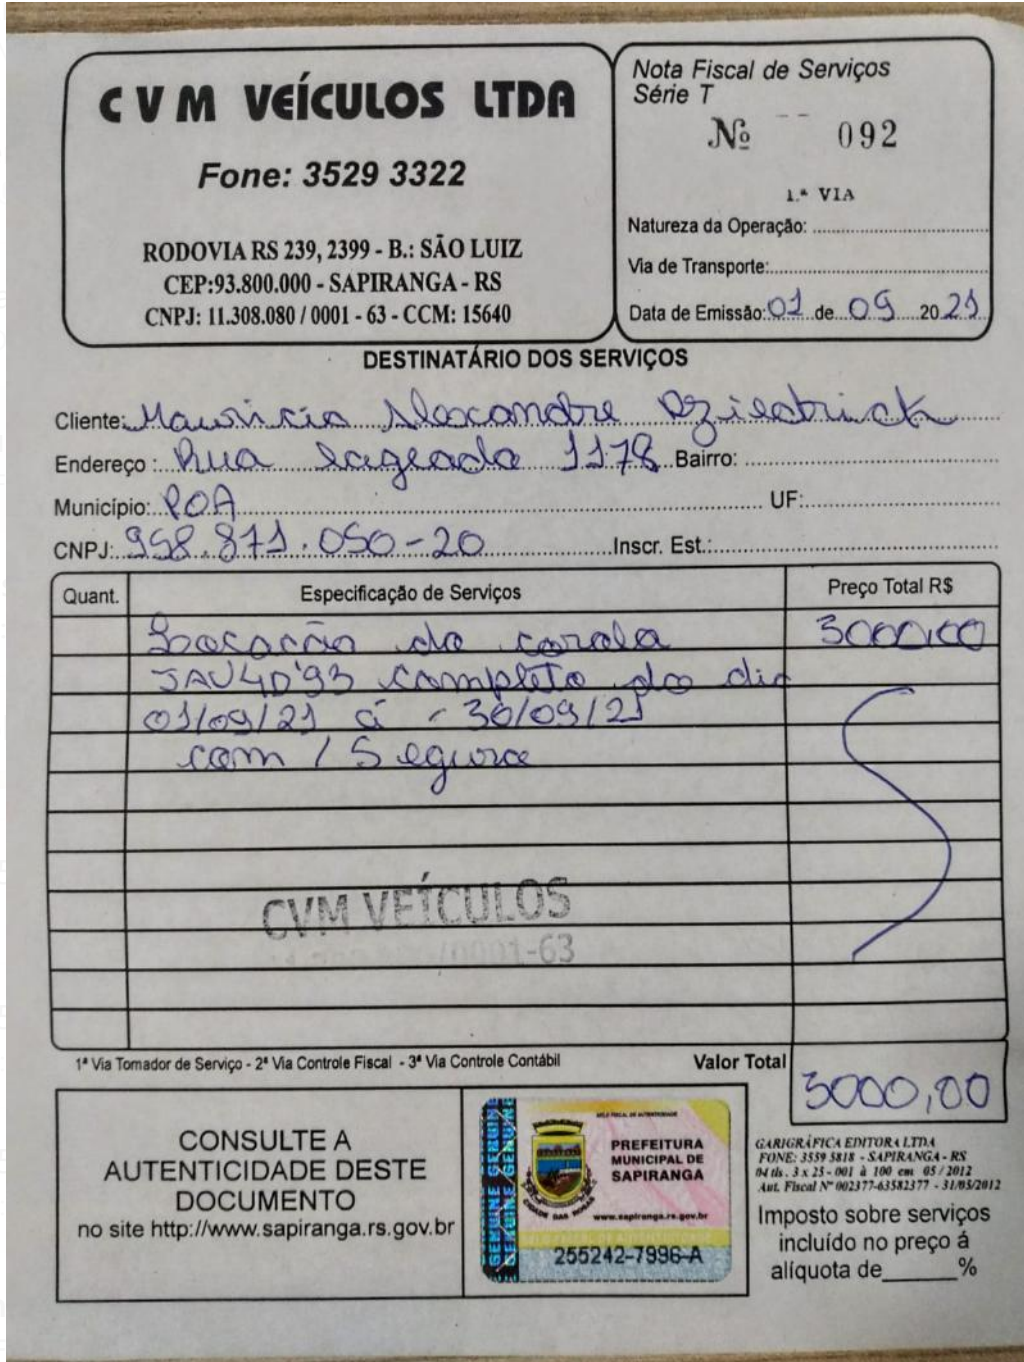 CVM VEÍCULOS LTDA
Fone: 3529 3322
RODOVIA RS 239, 2399 - B.: SÃO LUIZ
CEP:93.800.000 - SAPIRANGA - RS
CNPJ: 11.308.080 / 0001 - 63 - CCM: 15640
Nota Fiscal de Serviços
Série T
Nº 092
1.ª VIA
Natureza da Operação:
Via de Transporte:
Data de Emissão: 01 de 09 2021
DESTINATÁRIO DOS SERVIÇOS
Cliente: Mauricio Alexandre Dziedrick
Endereço: Rua Lageado 1178 Bairro:
Município: POA UF:
CNPJ: 958.871.050-20 Inscr. Est.:
Quant. Especificação de Serviços Preço Total R$
Locação do corola 3000,00
JAV4D93 completo do dia
01/09/21 á 30/09/21
com / Seguro
CVM VEÍCULOS
/0001-63
1ª Via Tomador de Serviço - 2ª Via Controle Fiscal - 3ª Via Controle Contábil Valor Total
3000,00
CONSULTE A
AUTENTICIDADE DESTE
DOCUMENTO
no site http://www.sapiranga.rs.gov.br
GENUINE GENUINE
SELO FISCAL DE AUTENTICIDADE
PREFEITURA
MUNICIPAL DE
SAPIRANGA
CIDADE DAS ROSAS
www.sapiranga.rs.gov.br
SELO FISCAL DE AUTENTICIDADE
255242-7996-A
GARIGRÁFICA EDITORA LTDA
FONE: 3559 5818 - SAPIRANGA - RS
04 tls. 3 x 25 - 001 à 100 em 05 / 2012
Aut. Fiscal Nº 002377-63582377 - 31/05/2012
Imposto sobre serviços
incluído no preço á
alíquota de______%